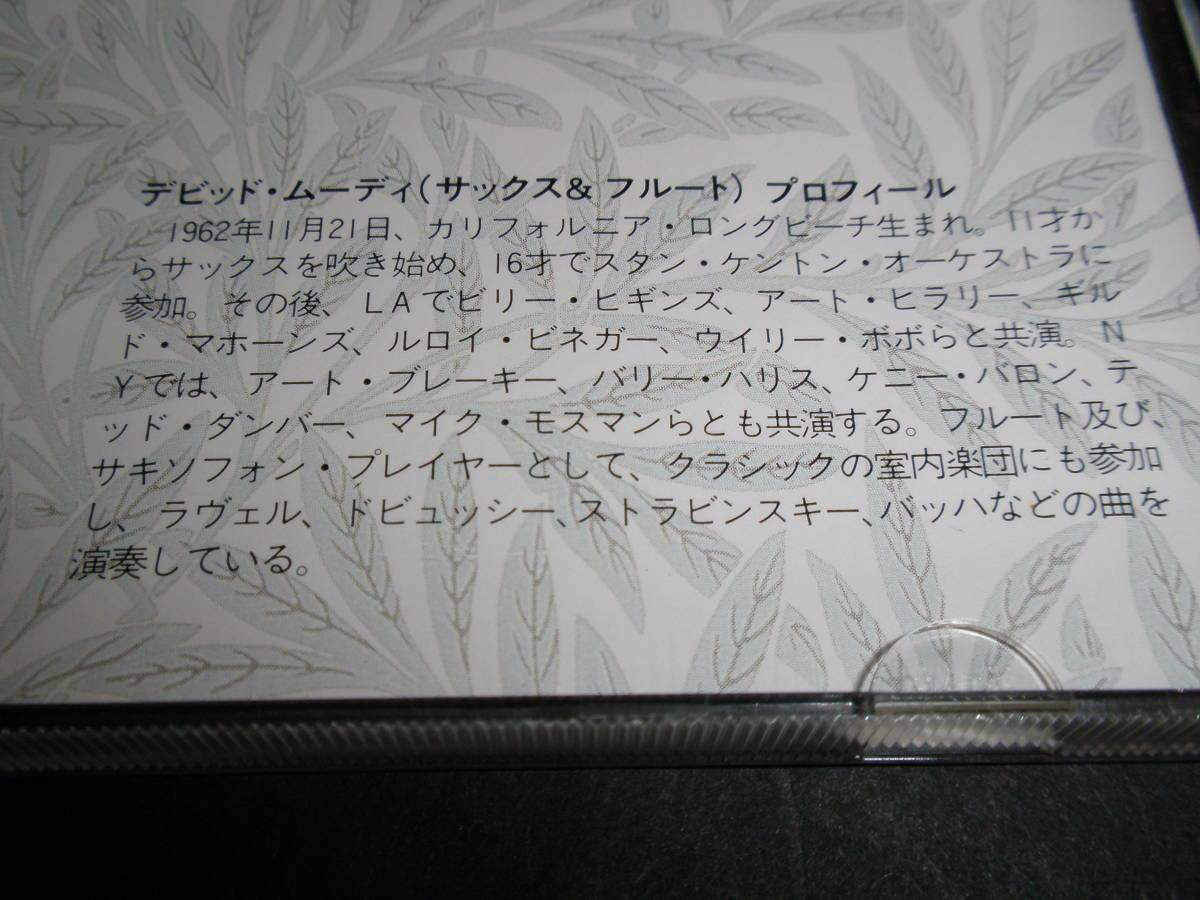 デビッド・ムーディ(サックス& フルート) プロフィール
1962年11月21日、カリフォルニア・ロングビーチ生まれ。11才か
らサックスを吹き始め、16才でスタン・ケントン・オーケストラに
参加。その後、LAでビリー・ヒギンズ、アート・ヒラリー、ギル
ド・マホーンズ、ルロイ・ビネガー、ウイリー・ボボらと共演。N
Yでは、アート・ブレーキー、バリー・ハリス、ケニー・バロン、テ
ッド・ダンバー、マイク・モスマンらとも共演する。フルート及び、
サキソフォン・プレイヤーとして、クラシックの室内楽団にも参加
し、ラヴェル、ドビュッシー、ストラビンスキー、バッハなどの曲を
演奏している。